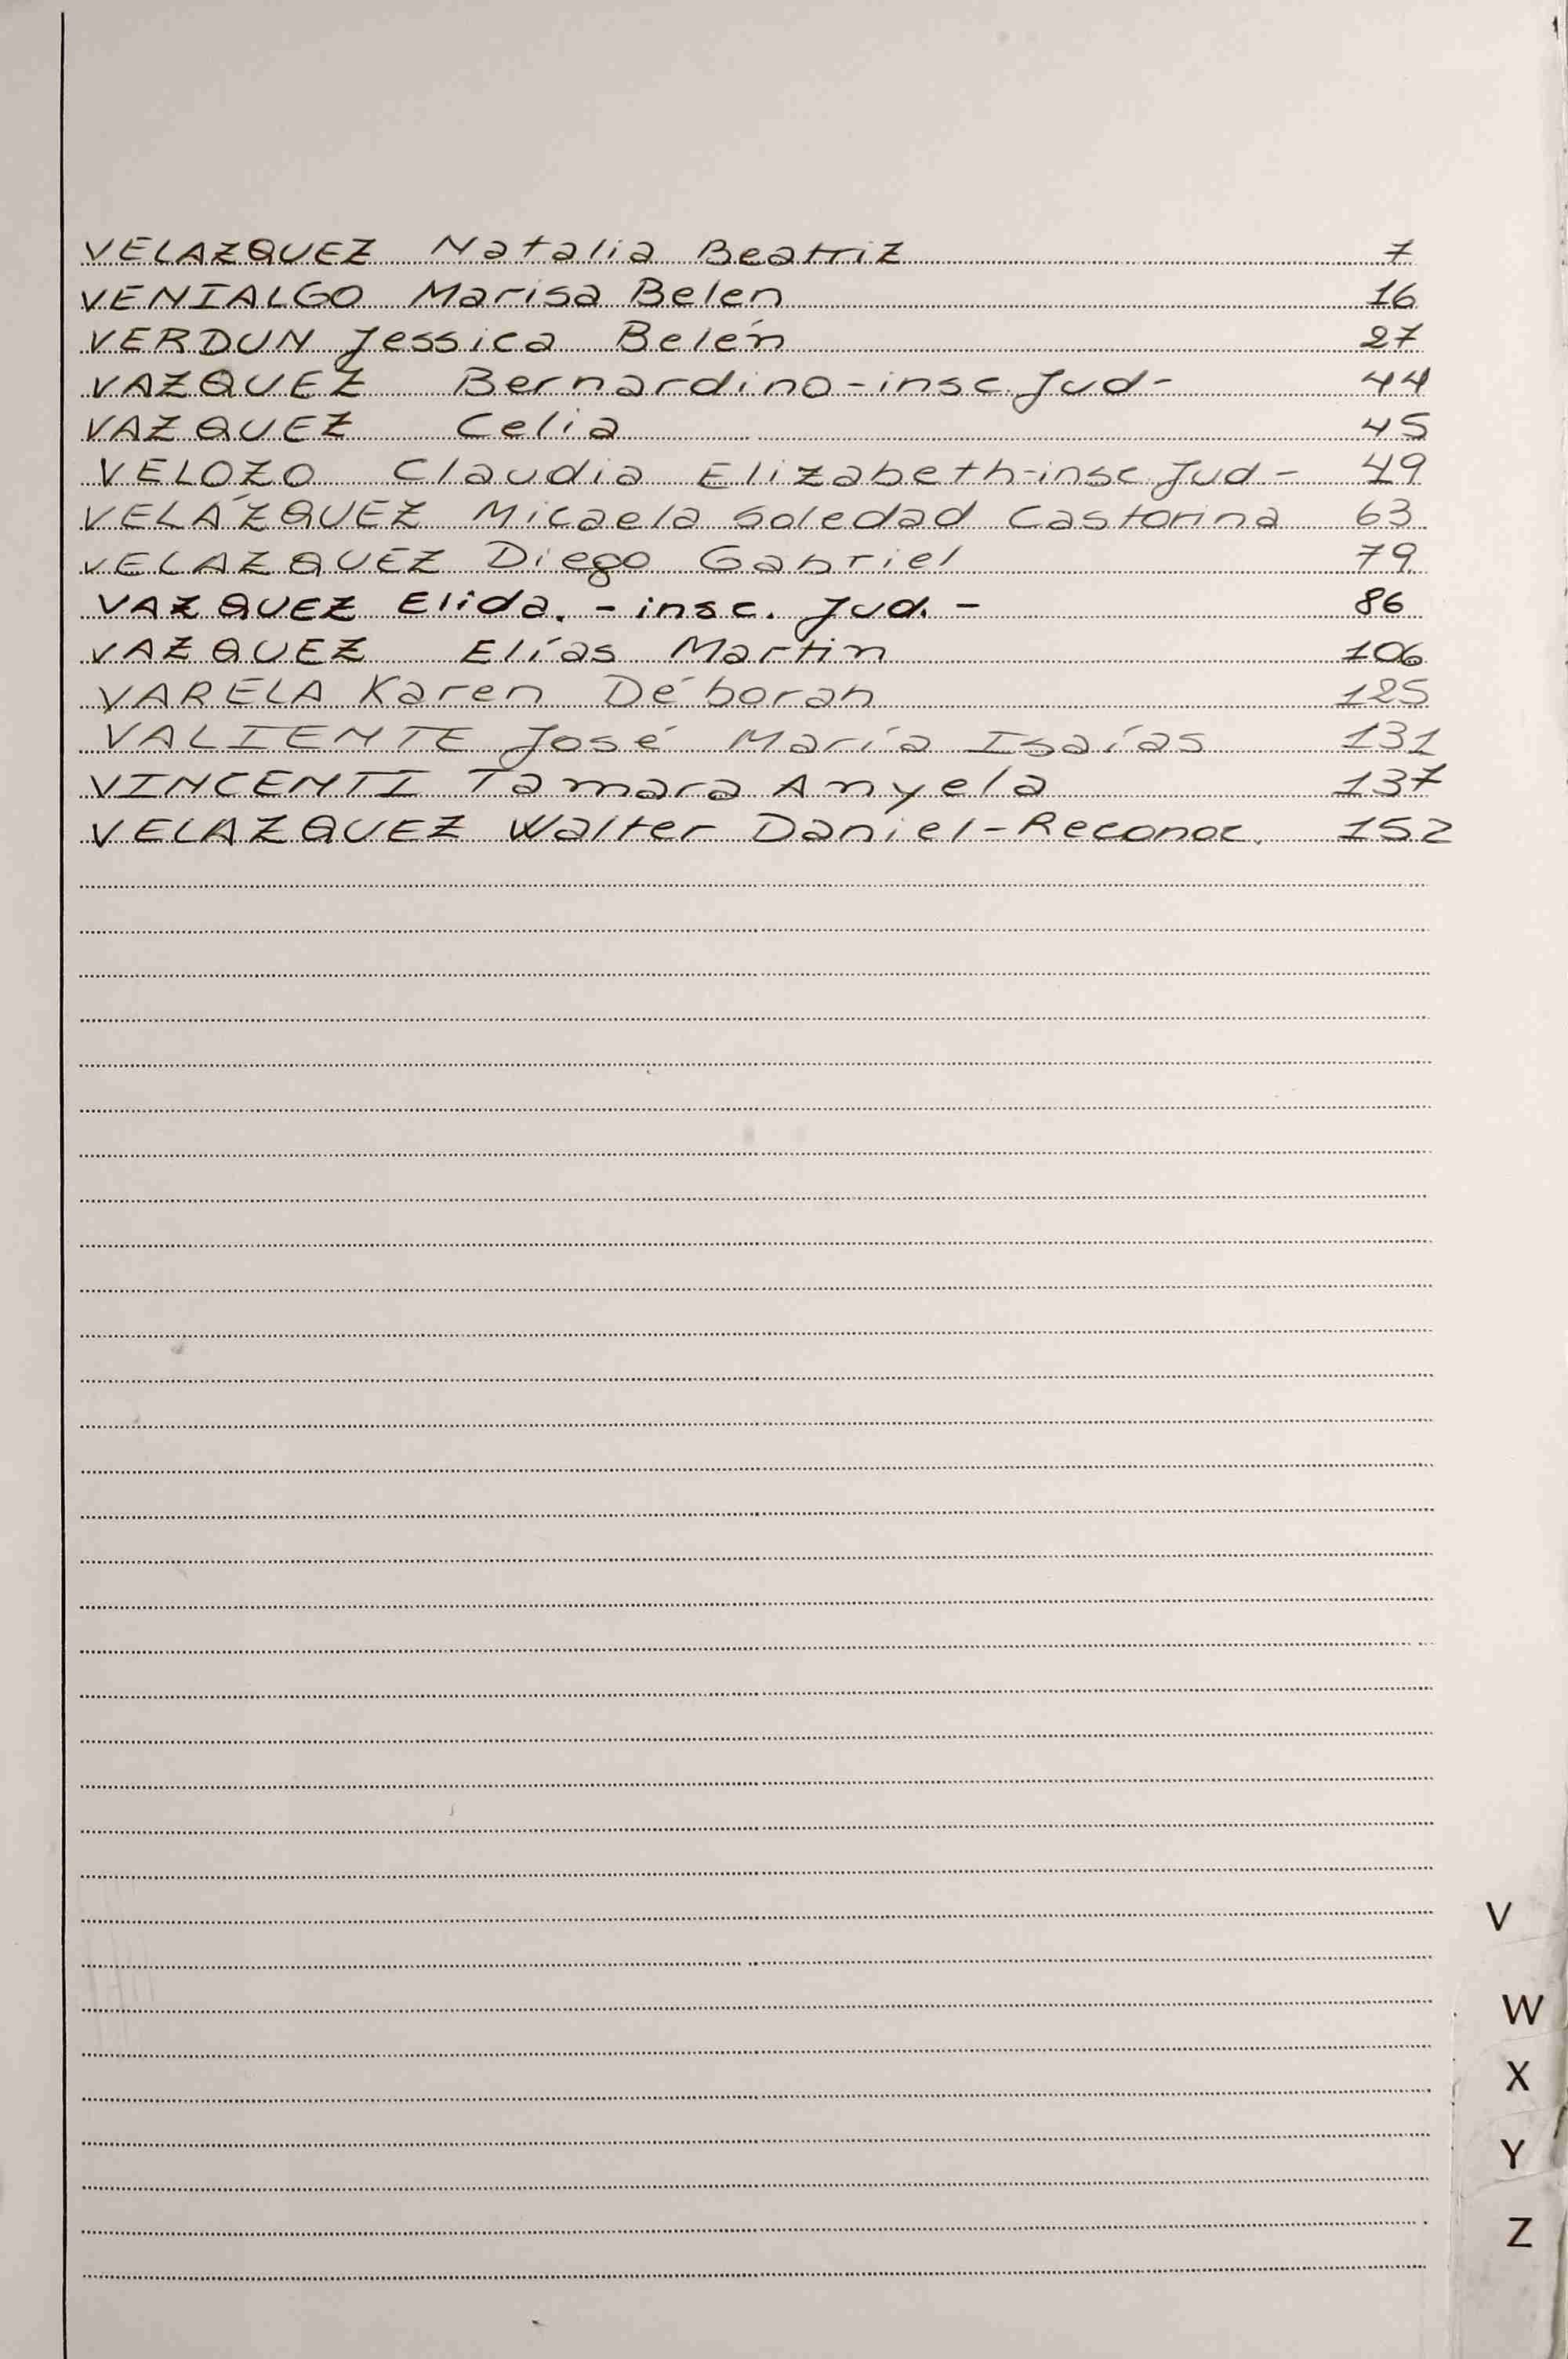 VELAZQUEZ Natalia Beatriz 7
VENIALGO Marisa Belen 16
VERDUN Jessica Belén 27
VAZQUEZ Bernardino-insc. Jud- 44
VAZQUEZ Celia 45
VELOZO Claudia Elizabeth-insc. Jud- 49
VELÁZQUEZ Micaela Soledad Castorina 63
VELAZQUEZ Diego Gabriel 79
VAZQUEZ Elida. - insc. Jud. - 86
VAZQUEZ Elías Martin 106
VARELA Karen Déborah 125
VALIENTE José María Isaías 131
VINCENTI Tamara Anyela 137
VELAZQUEZ Walter Daniel-Reconoc. 152
V
W
X
Y
Z